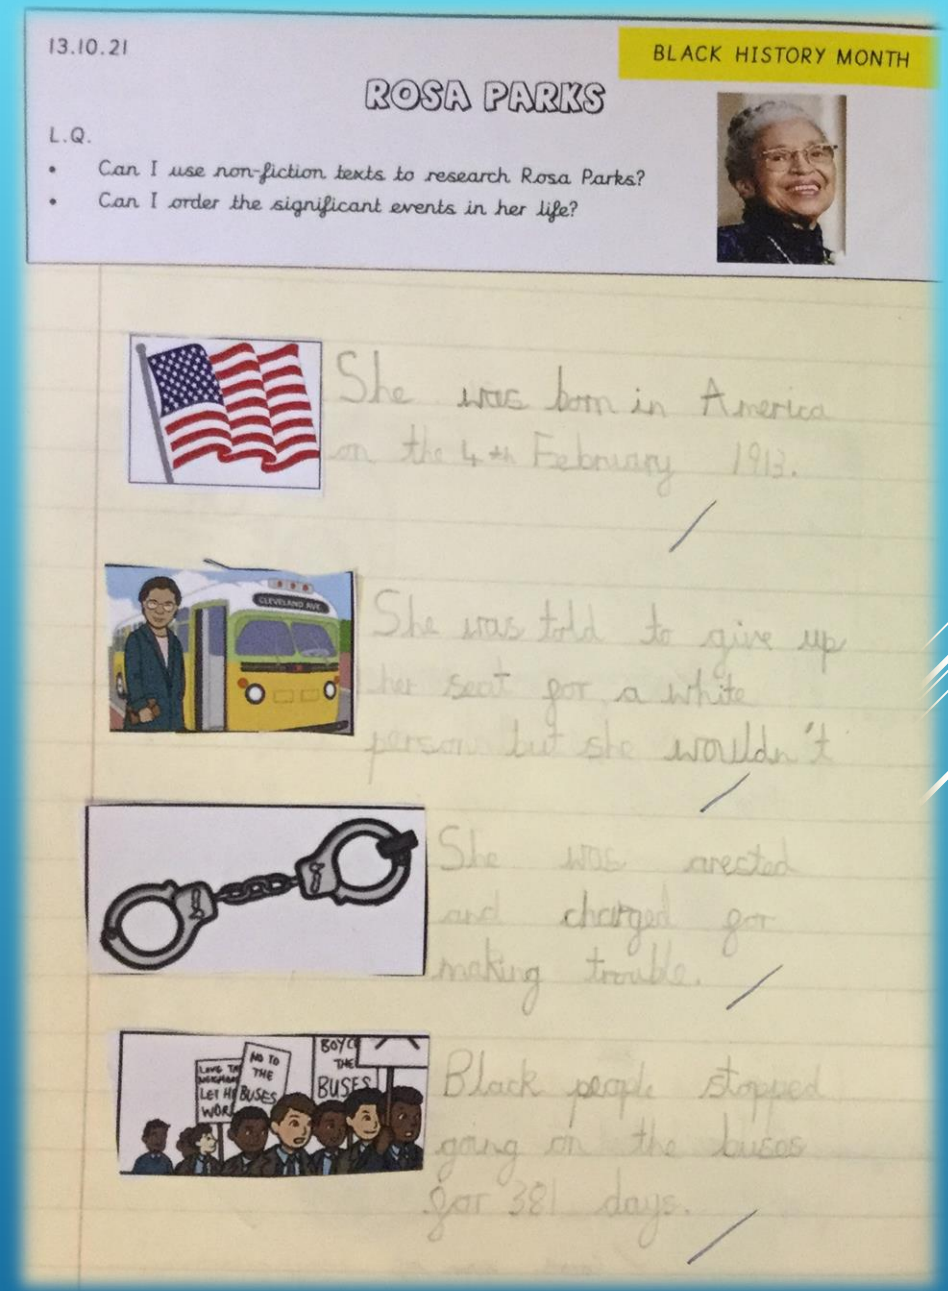 13.10.21
BLACK HISTORY MONTH
ROSA PARKS
L.Q.
• Can I use non-fiction texts to research Rosa Parks?
• Can I order the significant events in her life?
She was born in America
on the 4th February 1913.
CLEVELAND AVE
She was told to give up
her seat for a white
person but she wouldn't
She was arested
and charged for
making trouble.
LOVE
LET
NO TO
THE
BUSES
BOYC
THE
BUSES
Black people stopped
going on the buses
for 381 days.